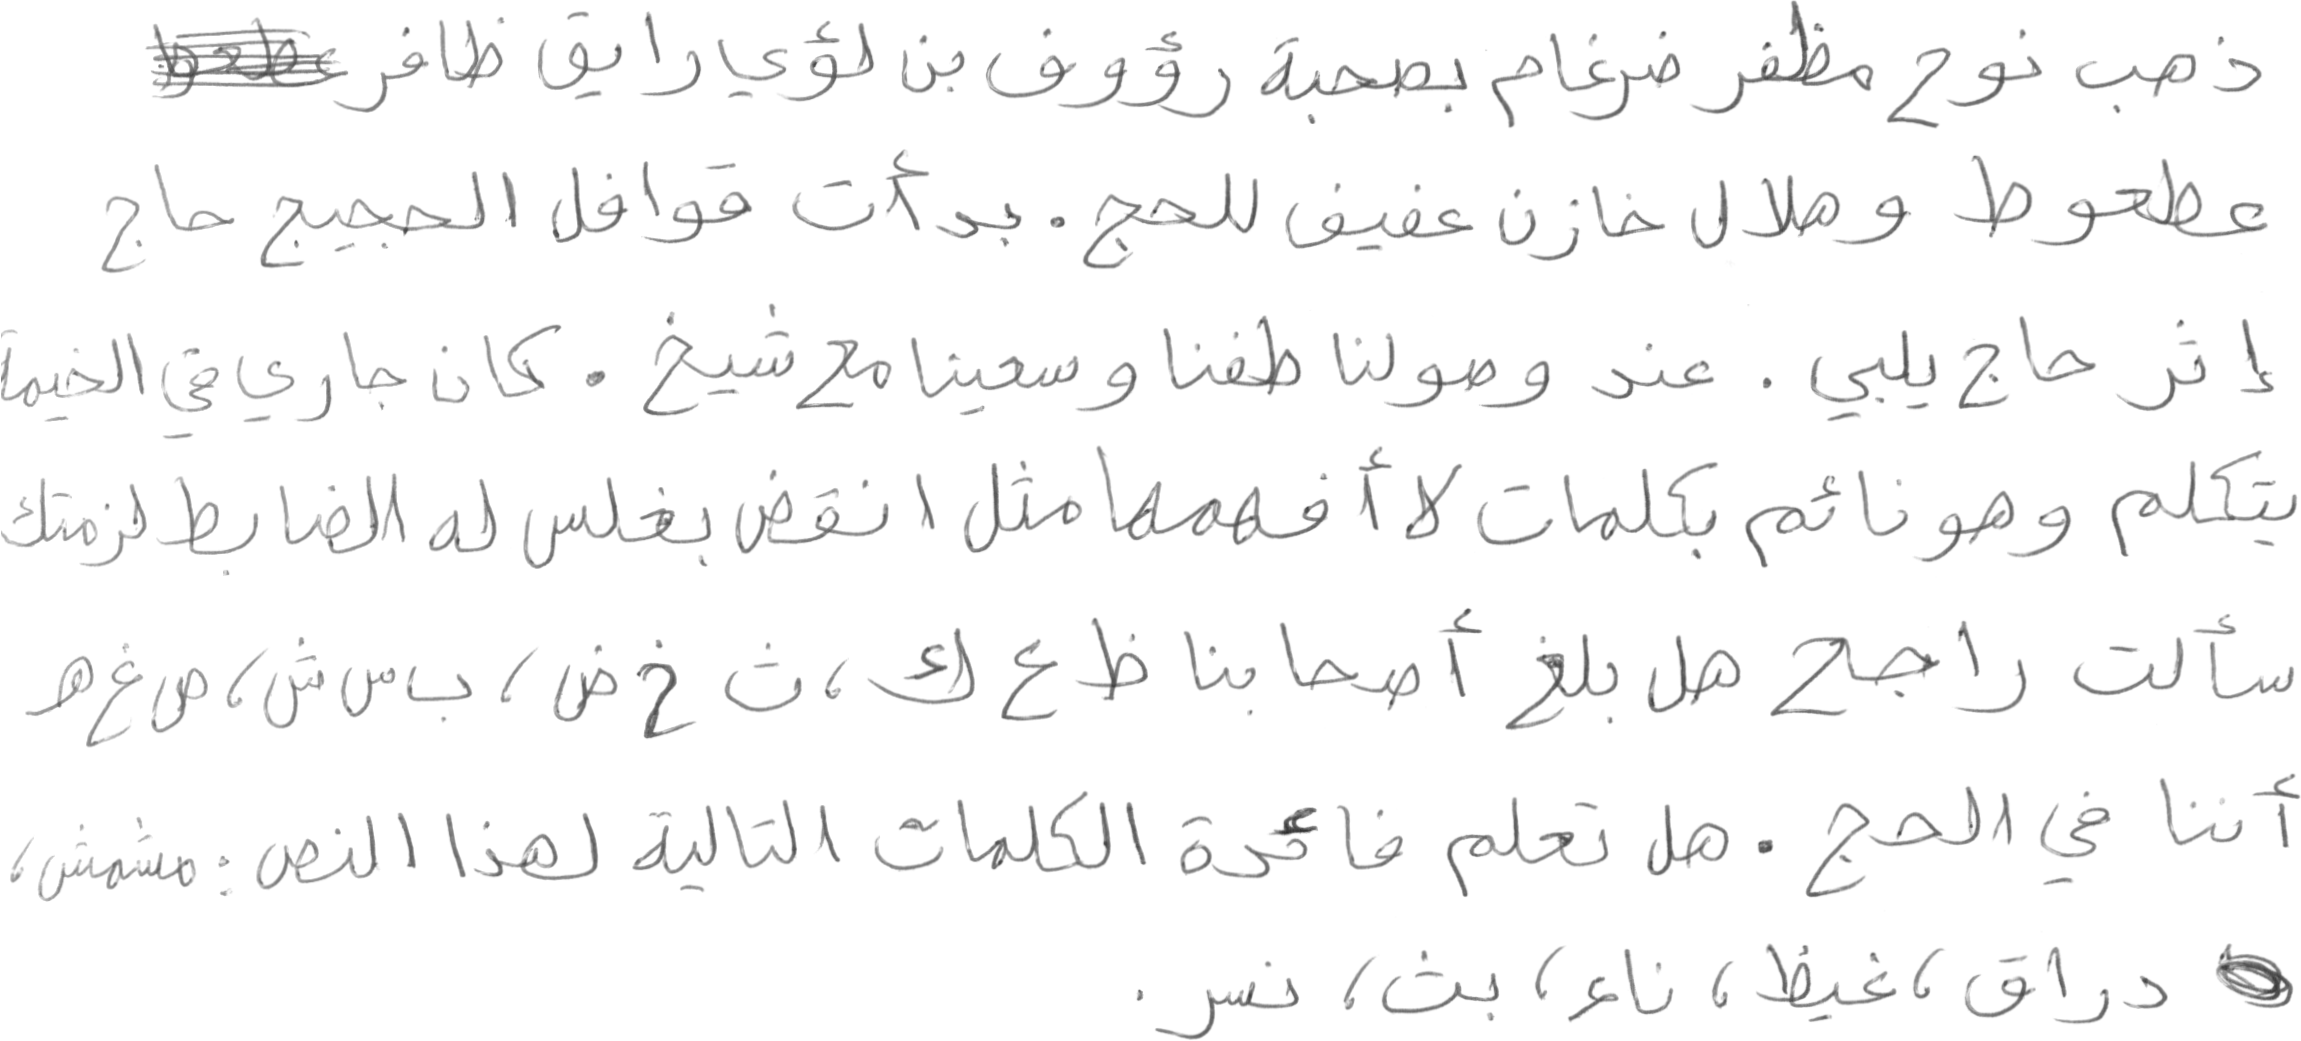 ذهب نوح مظفر ضرغام بصحبة رؤوف بن لؤي رايق ظافر
عطعوط وهلال خازن عفيف للحج. بدأت قوافل الحجيج حاج
إثر حاج يلبي. عند وصولنا طفنا وسعينا مع شيخ. كان جاري في الخيمة
يتكلم وهو نائم بكلمات لا أفهمها مثل انقض بغلس له الضابط لزمتك
سألت راجح هل بلغ أصحابنا ظ ع ك، ث خ ض، ب س ش، ص غ ه
أننا في الحج. هل تعلم فائدة الكلمات التالية لهذا النص: مشمش،
دراق، غيظ، ناء، بث، نسر.